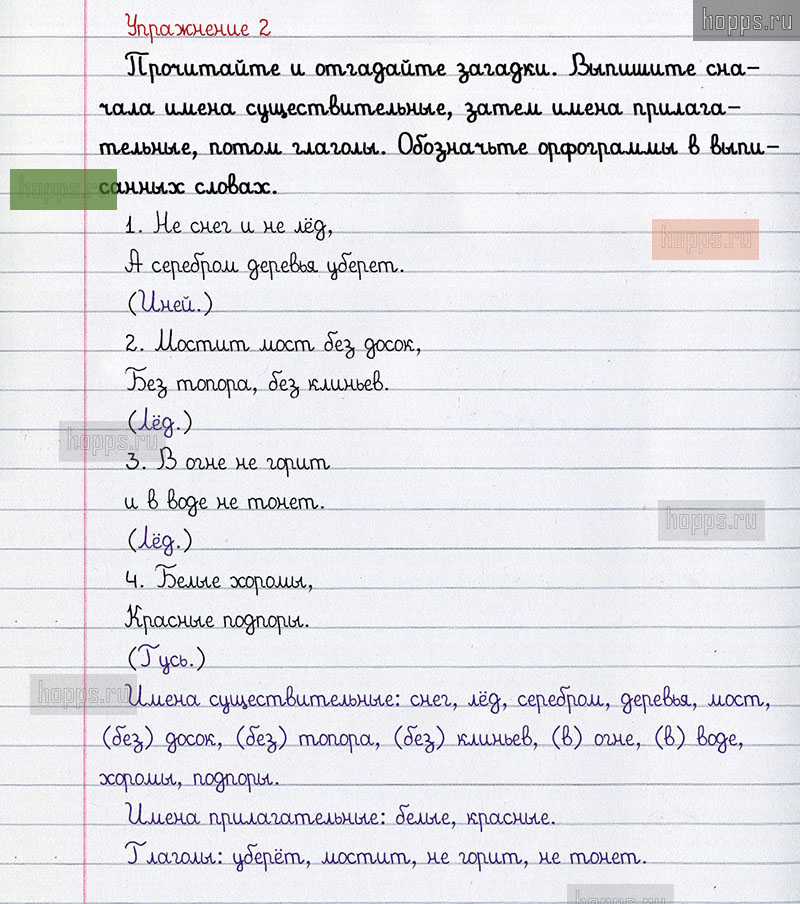 hopps.ru
Упражнение 2
Прочитайте и отгадайте загадки. Выпишите сна-
чала имена существительные, затем имена прилага-
тельные, потом глаголы. Обозначьте орфограммы в выпи-
hopps.ru
санных словах.
1. Не снег и не лёд,
hopps.ru
А серебром деревья уберет.
(Иней.)
2. Мостит мост без досок,
Без топора, без клиньев.
(Лёд.)
hopps.ru
3. В огне не горит
и в воде не тонет.
hopps.ru
(Лёд.)
4. Белые хоромы,
Красные подпоры.
(Гусь.)
hopps.ru
Имена существительные: снег, лёд, серебром, деревья, мост,
(без) досок, (без) топора, (без) клиньев, (в) огне, (в) воде,
хоромы, подпоры.
Имена прилагательные: белые, красные.
Глаголы: уберёт, мостит, не горит, не тонет.
hopps.ru